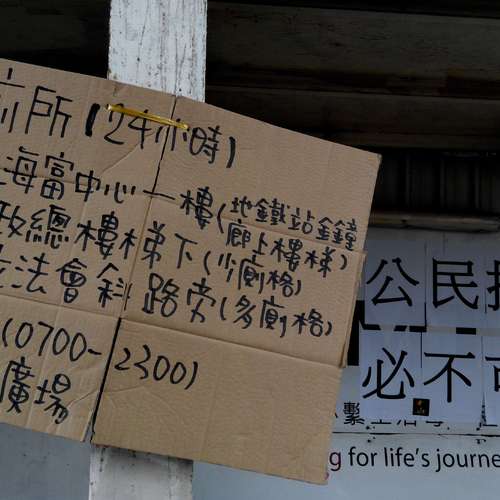 廁所(24小時)
海富中心一樓(地鐵站鐘
廊上樓梯)
政總樓梯下(少廁格)
立法會斜路旁(多廁格)
(0700-2300)
廣場
公民抗
必不可
繫生活
g for life's journe